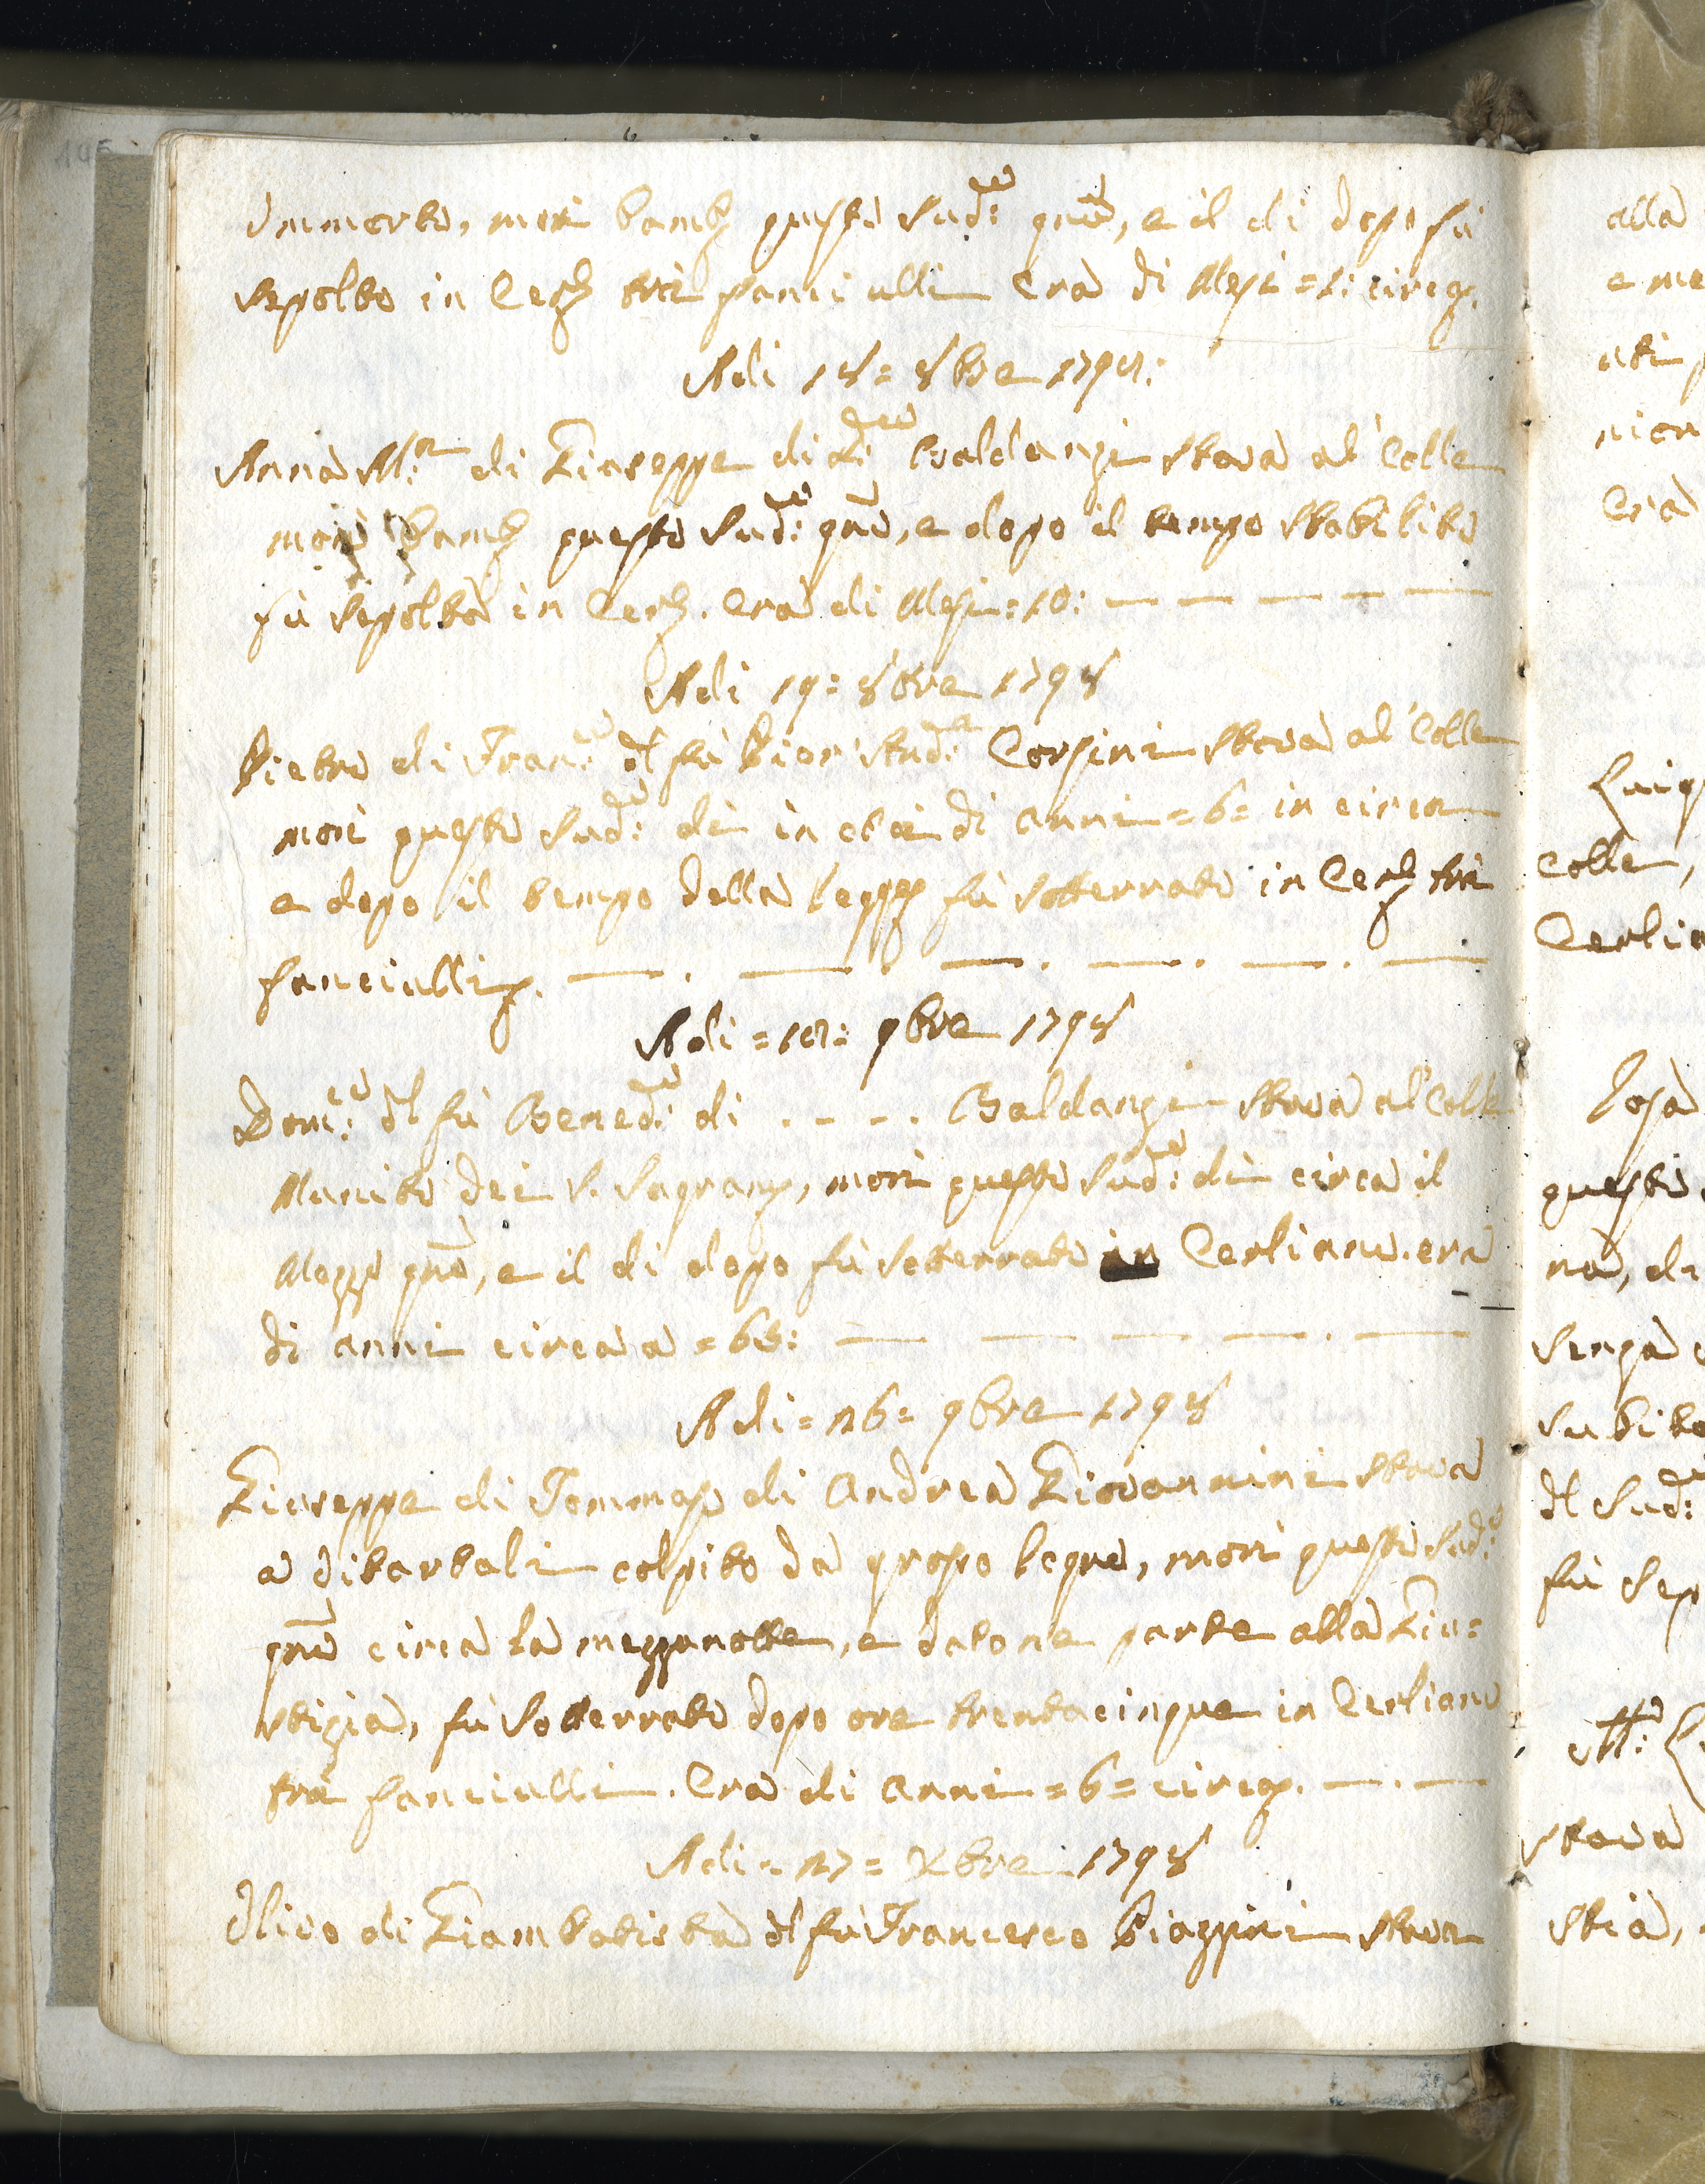 morì bamb questo Sud:to gno, e il di dopo fù
sepolto in Cerl trà fanciulli Era di Mesi = 1: circa.
Adi 18 = 8bre 1798:
Anna M:a di Giuseppe di Baldanzi stava al Colle
morì bamb questo Sud:to gno, e dopo il tempo stabilito
fù sepolta in Cerl. Era di Mesi = 10: — — — — —
Adi 19 = 8bre 1798
Pietro di Fran:co dl fù Pier Corsini stava al Colle
morì questo Sud:to di in età di anni = 6 = in circa
e dopo il tempo della legge fù sotterrato in Cerl trà
fanciulli. — . — . — . — . — . —
Adi = : 9bre 1798
Dom:co dl fù Bened:to di . - - . Baldanzi stava al Colle
Munito dei S. Sagram, morì questo Sud:to di circa il
Mezzo gno, e il di dopo fù sotterrato in Cerliano. era
di anni circa a = 63: — — — — . —
Adi = 26 = 9bre 1798
Giuseppe di Tommaso di Andrea Giovannini stava
a Ditarbali colpito da grosso legno, morì questo Sud:o
gno circa la mezzanotte, e datone parte alla Giu=
stizia, fù Sotterrato dopo ore trentacinque in Cerliano
trà fanciulli. Era di anni = 6 = circa. — . —
Adi = 27 = Xbre 1798
di Giambatista dl fù Francesco Piazzini stava
alla
Colle,
questo
Senza
Subito
dl Sud:
fù Sep
stava